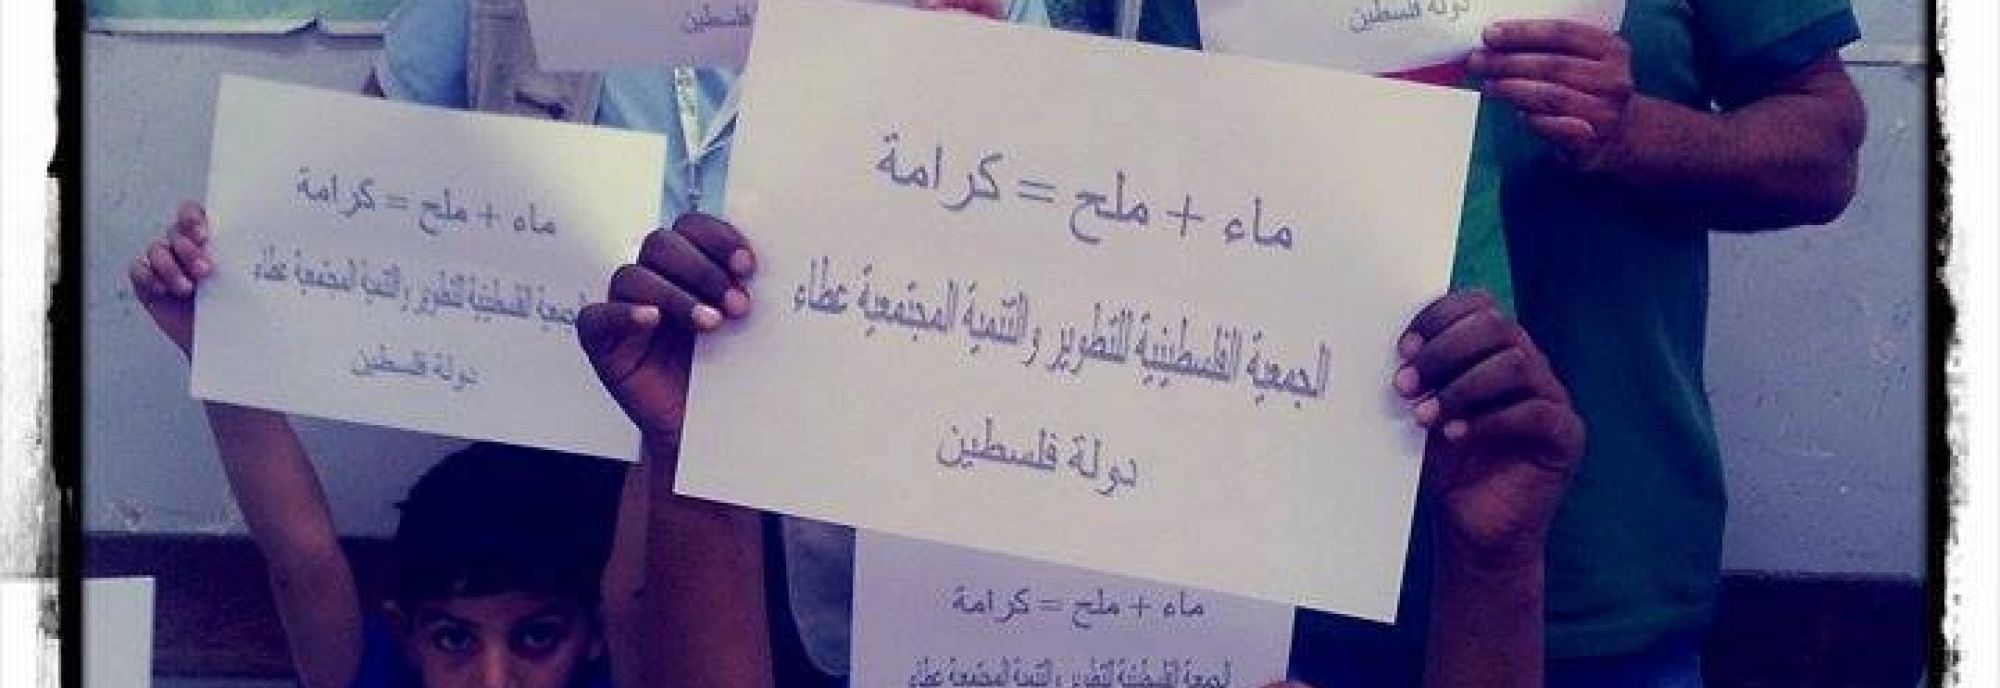 فلسطين
دولة فلسطين
ماء + ملح = كرامة
الجمعية الفلسطينية للتطوير والتنمية المجتمعية عطاء
دولة فلسطين
ماء + ملح = كرامة
الجمعية الفلسطينية للتطوير والتنمية المجتمعية عطاء
دولة فلسطين
ماء + ملح = كرامة
الجمعية الفلسطينية للتطوير والتنمية المجتمعية عطاء